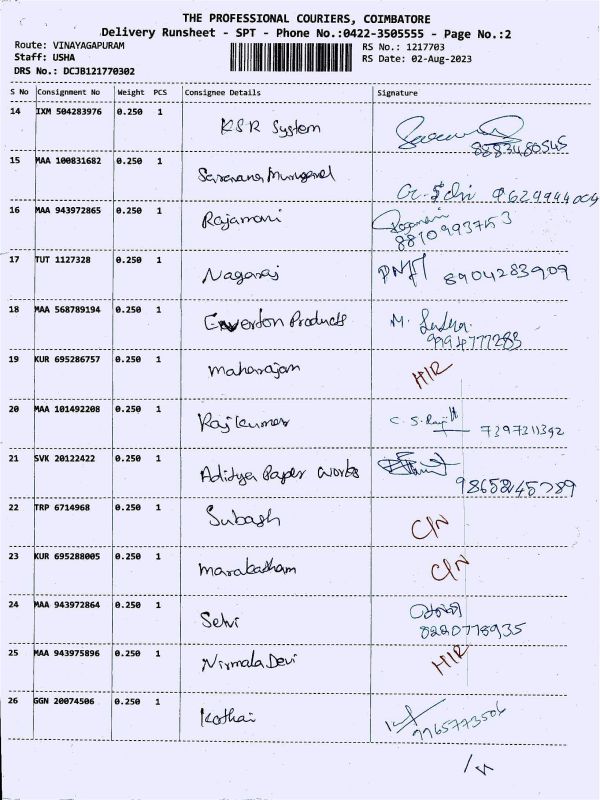 THE PROFESSIONAL COURIERS, COIMBATORE
Delivery Runsheet - SPT - Phone No.:0422-3505555 - Page No.:2
Route: VINAYAGAPURAM
Staff: USHA
DRS No.: DCJB121770302
RS No.: 1217703
RS Date: 02-Aug-2023
S No Consignment No Weight PCS Consignee Details Signature
14 IXM 504283976 0.250 1 KSR System
8883480545
15 MAA 100831682 0.250 1
16 MAA 943972865 0.250 1 Rajamani
17 TUT 1127328 0.250 1 Nagaraj 8904283909
18 MAA 568789194 0.250 1 Products M.
9994777283
19 KUR 695286757 0.250 1 maharajan
20 MAA 101492208 0.250 1 Rajkumar C. S. 7397211392
21 SVK 20122422 0.250 1 Aditya Paper works
22 TRP 6714968 0.250 1 Subash C/N
23 KUR 695288005 0.250 1 marakatham C/N
24 MAA 943972864 0.250 1 Selvi
8220718935
25 MAA 943975896 0.250 1 Nirmala Devi
26 GGN 20074506 0.250 1 Kothai
9765773506